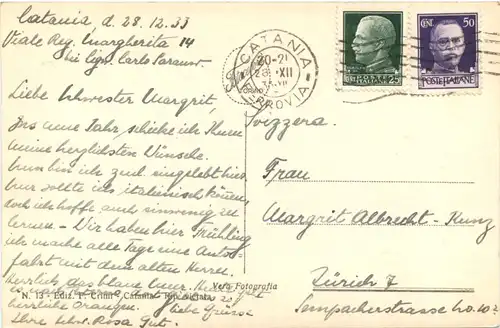 Catania d. 28.12.33
Viale Reg. Margherita 14
bei Sign. Carlo
Liebe Schwester Margrit,
Ins neue Jahr, schicke ich Ihnen
meine herzlichsten Wünsche.
Nun bin ich zml. eingelebt hier
nur sollte ich italienisch können,
doch ich hoffe auch ein wenig zu
lernen - Wir haben hier Frühling
ich mache alle Tage eine Auto-
fahrt mit dem alten Herrn.
Herrlich das blaue
herrliche Orangen. Liebe Grüsse
Ihre Schw. Rosa Gut.
N. 13 - Ediz. F. - Catania - Rip. vietata
Vera Fotografia
CATANIA
20-21
28 XII
FERROVIA
25
CENT. 50
POSTE ITALIANE
Svizzera.
Frau
Margrit Albrecht-Kunz
Zürich 7
Sempacherstrasse